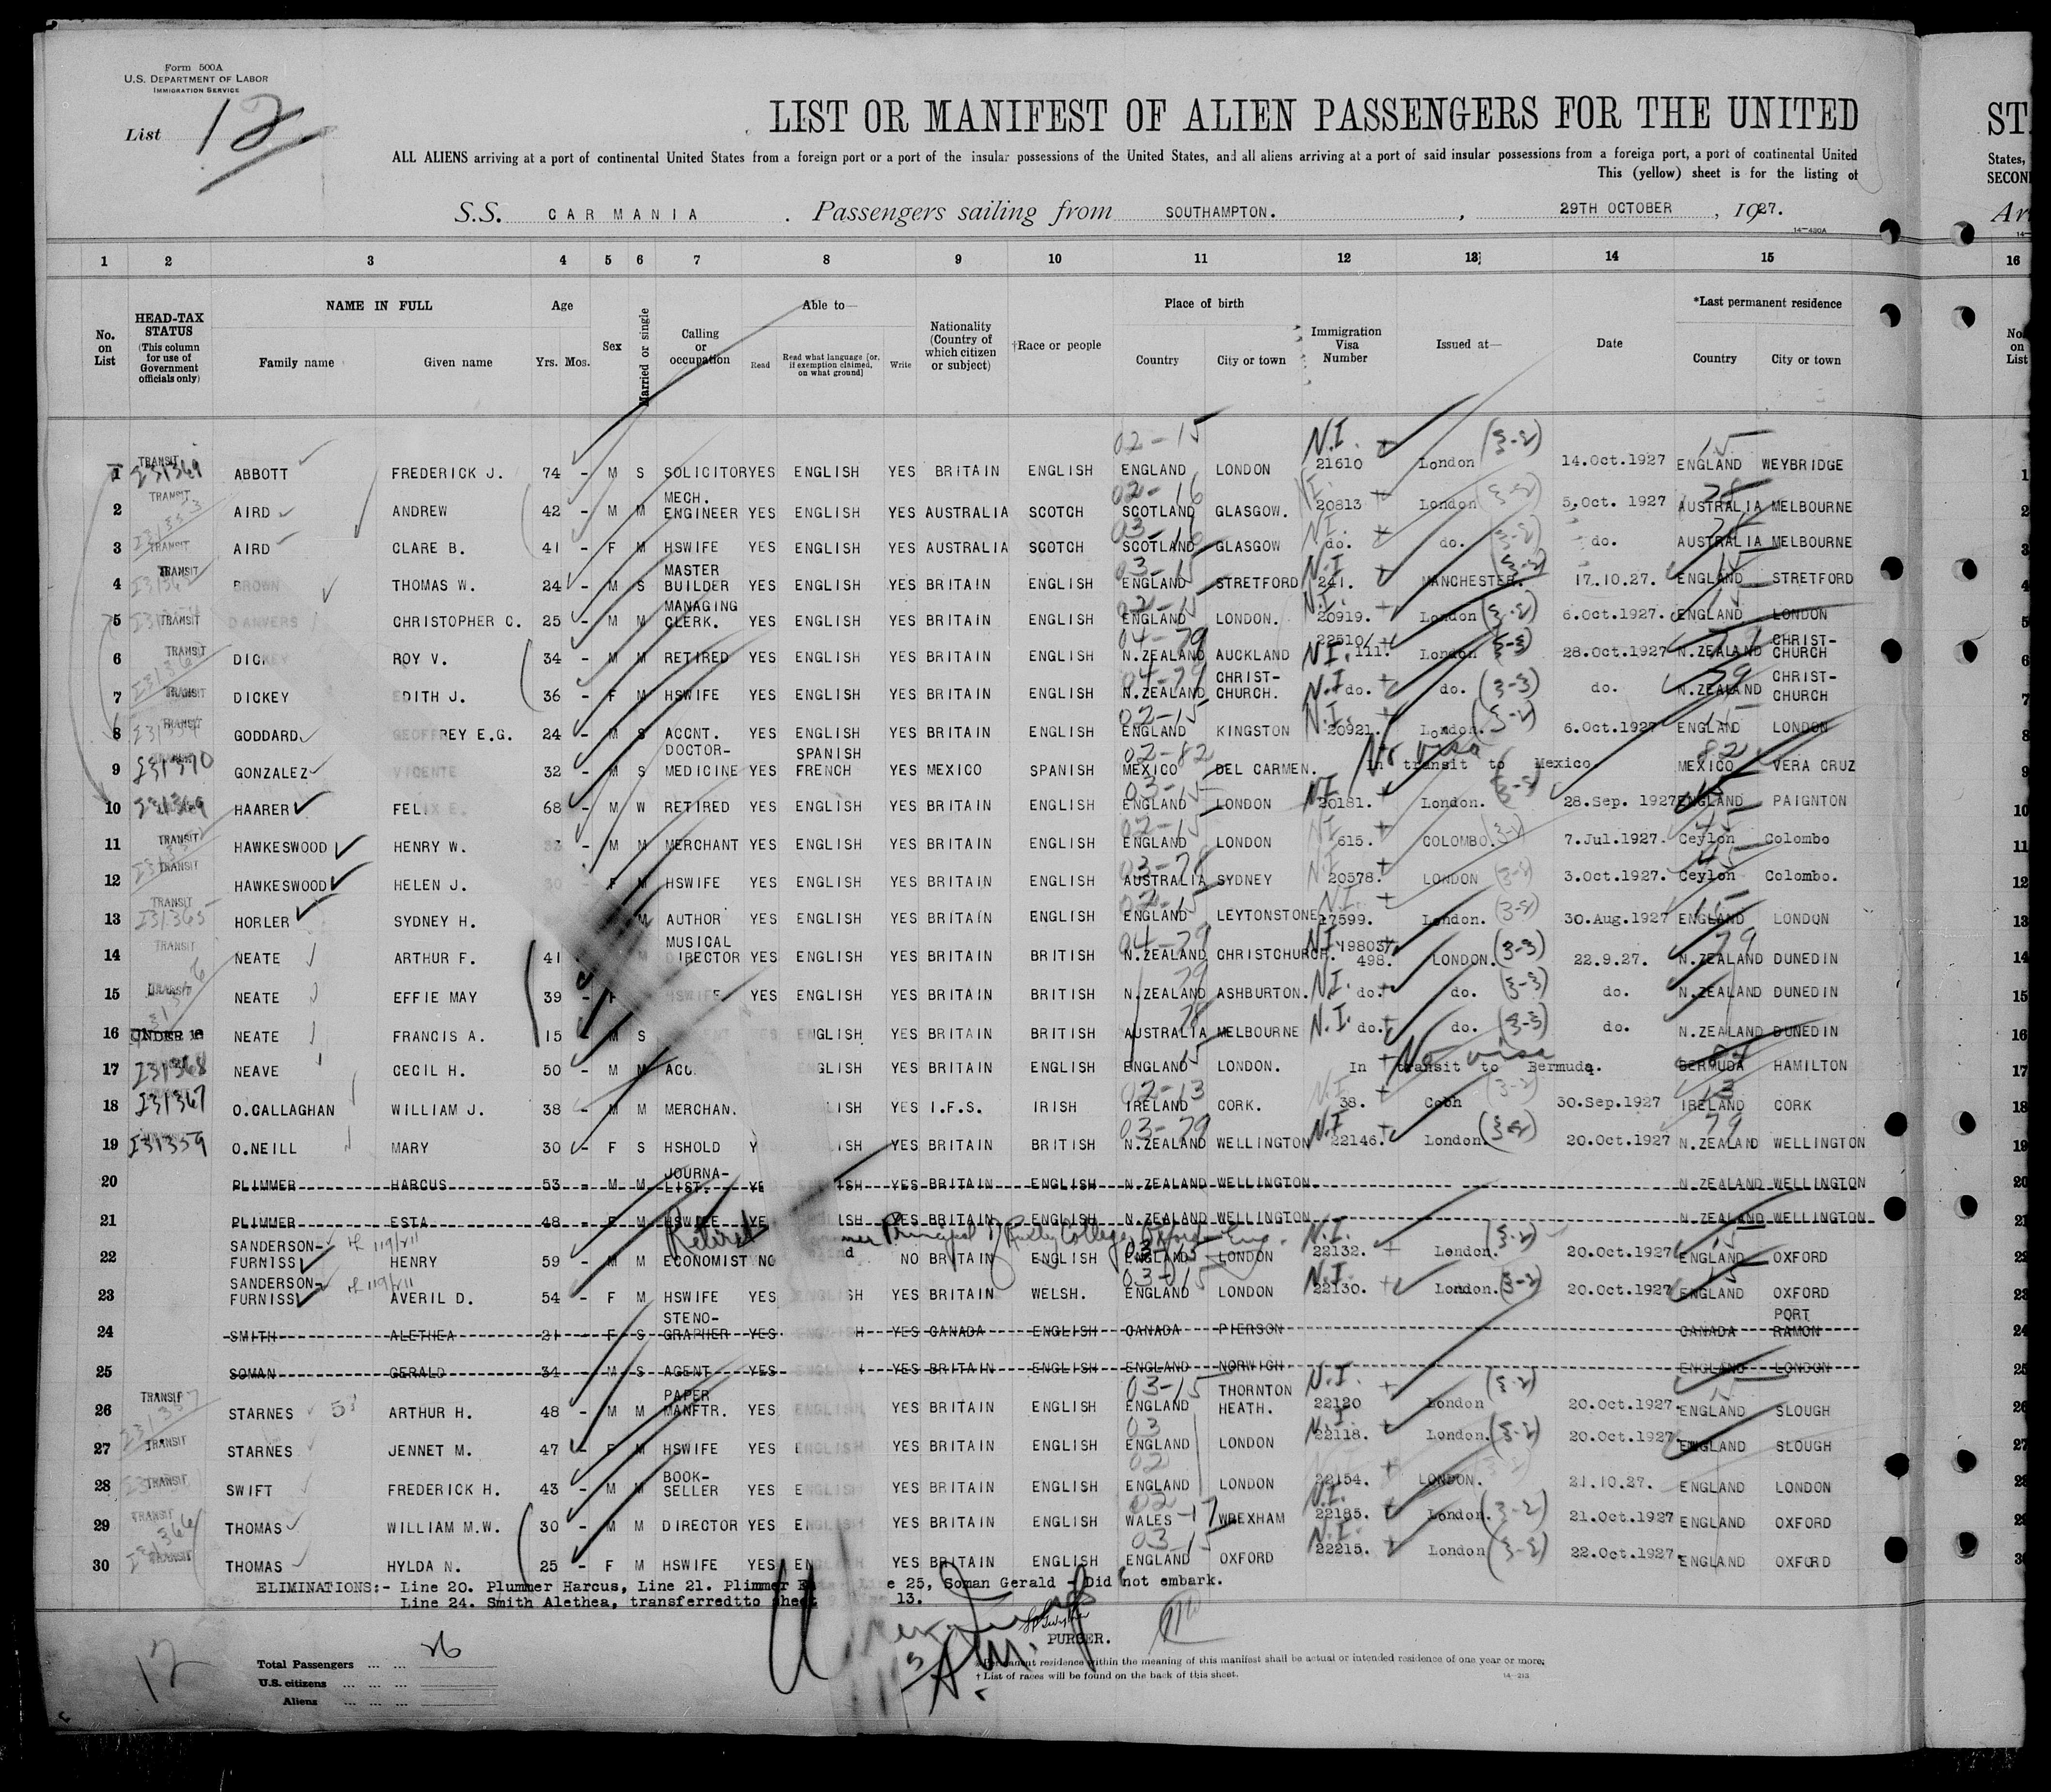 Form 500A
U.S. DEPARTMENT OF LABOR
IMMIGRATION SERVICE
List 12
LIST OR MANIFEST OF ALIEN PASSENGERS FOR THE UNITED
ST
ALL ALIENS arriving at a port of continental United States from a foreign port or a port of the insular possessions of the United States, and all aliens arriving at a port of said insular possessions from a foreign port, a port of continental United
States,
This (yellow) sheet is for the listing of
S.S. CARMANIA . Passengers sailing from SOUTHAMPTON. , 29TH OCTOBER , 1927.
14—430A
1 2 3 4 5 6 7 8 9 10 11 12 13 14 15 16
No. on List
HEAD-TAX STATUS (This column for use of Government officials only)
NAME IN FULL Family name Given name
Age Yrs. Mos.
Sex
Married or single
Calling or occupation
Able to— Read Read what language [or, if exemption claimed, on what ground] Write
Nationality (Country of which citizen or subject)
†Race or people
Place of birth Country City or town
Immigration Visa Number
Issued at—
Date
*Last permanent residence Country City or town
No. on List
1 TRANSIT ABBOTT FREDERICK J. 74 - M S SOLICITOR YES ENGLISH YES BRITAIN ENGLISH 02-15 ENGLAND LONDON N.I. 21610 London (3-2) 14.Oct.1927 15 ENGLAND WEYBRIDGE 1
2 TRANSIT AIRD ANDREW 42 - M M MECH. ENGINEER YES ENGLISH YES AUSTRALIA SCOTCH 02-16 SCOTLAND GLASGOW. 20813 London (3-2) 5.Oct. 1927 AUSTRALIA MELBOURNE 2
3 TRANSIT AIRD CLARE B. 41 - F M HSWIFE YES ENGLISH YES AUSTRALIA SCOTCH SCOTLAND GLASGOW N.I. do. do. (3-2) do. AUSTRALIA MELBOURNE 3
4 TRANSIT BROWN THOMAS W. 24 - M S MASTER BUILDER YES ENGLISH YES BRITAIN ENGLISH 03-15 ENGLAND STRETFORD N.I. 241. MANCHESTER. (3-2) 17.10.27. 15 ENGLAND STRETFORD 4
5 TRANSIT DANVERS CHRISTOPHER C. 25 - M M MANAGING CLERK. YES ENGLISH YES BRITAIN ENGLISH 02-15 ENGLAND LONDON. N.I. 20919. London (3-2) 6.Oct.1927. 15 ENGLAND LONDON 5
6 TRANSIT DICKEY ROY V. 34 - M M RETIRED YES ENGLISH YES BRITAIN ENGLISH 04-79 N.ZEALAND AUCKLAND N.I. 22510/ 111. London (3-3) 28.Oct.1927 N.ZEALAND CHRIST- CHURCH 6
7 TRANSIT DICKEY EDITH J. 36 - F M HSWIFE YES ENGLISH YES BRITAIN ENGLISH 04-79 N.ZEALAND CHRIST- CHURCH. N.I. do. do. (3-3) do. 79 N.ZEALAND CHRIST- CHURCH 7
8 TRANSIT GODDARD GEOFFREY E.G. 24 - M S ACCNT. YES ENGLISH YES BRITAIN ENGLISH 02-15 ENGLAND KINGSTON N.I. 20921. London. (3-2) 6.Oct.1927 15 ENGLAND LONDON 8
9 I31370 GONZALEZ VICENTE 32 - M S DOCTOR- MEDICINE YES SPANISH FRENCH YES MEXICO SPANISH 02-82 MEXICO DEL CARMEN. No visa In transit to Mexico. 82 MEXICO VERA CRUZ 9
10 I31369 HAARER FELIX E. 68 - M W RETIRED YES ENGLISH YES BRITAIN ENGLISH 03-15 ENGLAND LONDON N.I. 20181. London. (3-3) 28.Sep. 1927 ENGLAND PAIGNTON 10
11 TRANSIT HAWKESWOOD HENRY W. M M MERCHANT YES ENGLISH YES BRITAIN ENGLISH 02-15 ENGLAND LONDON N.I. 615. COLOMBO. (3-2) 7.Jul.1927. 45 Ceylon Colombo 11
12 TRANSIT HAWKESWOOD HELEN J. 30 F M HSWIFE YES ENGLISH YES BRITAIN ENGLISH 03-78 AUSTRALIA SYDNEY N.I. 20578. LONDON (3-2) 3.Oct.1927. 45 Ceylon Colombo. 12
13 TRANSIT I31365 HORLER SYDNEY H. M AUTHOR YES ENGLISH YES BRITAIN ENGLISH 02-15 ENGLAND LEYTONSTONE N.I. 17599. London. (3-2) 30.Aug.1927 15 ENGLAND LONDON 13
14 TRANSIT NEATE ARTHUR F. 41 M MUSICAL DIRECTOR YES ENGLISH YES BRITAIN BRITISH 04-79 N.ZEALAND CHRISTCHURCH. N.I. 19803/ 498. LONDON. (3-3) 22.9.27. 79 N.ZEALAND DUNEDIN 14
15 TRANSIT NEATE EFFIE MAY 39 - F HSWIFE YES ENGLISH YES BRITAIN BRITISH 79 N.ZEALAND ASHBURTON. N.I. do. do. (3-3) do. N.ZEALAND DUNEDIN 15
16 UNDER 16 NEATE FRANCIS A. 15 - M S ENGLISH YES BRITAIN BRITISH 78 AUSTRALIA MELBOURNE N.I. do. do. (3-3) do. N.ZEALAND DUNEDIN 16
17 I31368 NEAVE CECIL H. 50 - M M ENGLISH YES BRITAIN ENGLISH 15 ENGLAND LONDON. No visa In transit to Bermuda. BERMUDA HAMILTON 17
18 I31367 O.CALLAGHAN WILLIAM J. 38 - M M MERCHAN. YES I.F.S. IRISH 02-13 IRELAND CORK. N.I. 38. Cobh (3-2) 30.Sep.1927 13 IRELAND CORK 18
19 I31359 O.NEILL MARY 30 - F S HSHOLD YES BRITAIN BRITISH 03-79 N.ZEALAND WELLINGTON N.I. 22146. London. (3-2) 20.Oct.1927 79 N.ZEALAND WELLINGTON 19
20 PLIMMER HARCUS 53 - M M JOURNA- LIST. YES BRITAIN ENGLISH N.ZEALAND WELLINGTON N.ZEALAND WELLINGTON 20
21 PLIMMER ESTA 48 - F M HSWIFE YES BRITAIN ENGLISH N.ZEALAND WELLINGTON N.ZEALAND WELLINGTON 21
Retired Principal of College, Oxford Eng.
22 SANDERSON- FURNISS HENRY 59 - M M ECONOMIST NO NO BRITAIN ENGLISH 03-15 ENGLAND LONDON N.I. 22132. London. (3-2) 20.Oct.1927 15 ENGLAND OXFORD 22
23 SANDERSON- FURNISS AVERIL D. 54 - F M HSWIFE YES ENGLISH YES BRITAIN WELSH. 03-15 ENGLAND LONDON N.I. 22130. London. (3-2) 20.Oct.1927 15 ENGLAND OXFORD 23
24 SMITH ALETHEA 21 - F S STENO- GRAPHER YES ENGLISH YES CANADA ENGLISH CANADA PIERSON CANADA PORT RAMON 24
25 SOMAN GERALD 34 - M S AGENT YES ENGLISH YES BRITAIN ENGLISH ENGLAND NORWICH ENGLAND LONDON 25
26 TRANSIT STARNES ARTHUR H. 48 - M M PAPER MANFTR. YES ENGLISH YES BRITAIN ENGLISH 03-15 ENGLAND THORNTON HEATH. N.I. 22120 London (3-2) 20.Oct.1927. 15 ENGLAND SLOUGH 26
27 TRANSIT STARNES JENNET M. 47 - F M HSWIFE YES ENGLISH YES BRITAIN ENGLISH 03 ENGLAND LONDON N.I. 22118. London. (3-2) 20.Oct.1927 ENGLAND SLOUGH 27
28 TRANSIT SWIFT FREDERICK H. 43 - M M BOOK- SELLER YES ENGLISH YES BRITAIN ENGLISH 02 ENGLAND LONDON 22154. LONDON. 21.10.27. ENGLAND LONDON 28
29 TRANSIT THOMAS WILLIAM M.W. 30 - M M DIRECTOR YES ENGLISH YES BRITAIN ENGLISH 02-17 WALES WREXHAM N.I. 22185. London. (3-2) 21.Oct.1927 ENGLAND OXFORD 29
30 TRANSIT THOMAS HYLDA N. 25 - F M HSWIFE YES ENGLISH YES BRITAIN ENGLISH 03-15 ENGLAND OXFORD N.I. 22215. London (3-2) 22.Oct.1927. ENGLAND OXFORD 30
ELIMINATIONS:- Line 20. Plummer Harcus, Line 21. Plimmer 25, Soman Gerald - Did not embark.
Line 24. Smith Alethea, transferredtto sheet 13.
PURSER.
12
Total Passengers ... ... 26
U.S. citizens ... ... ...
Aliens ... ... ...
* Permanent residence within the meaning of this manifest shall be actual or intended residence of one year or more.
† List of races will be found on the back of this sheet. 14—213